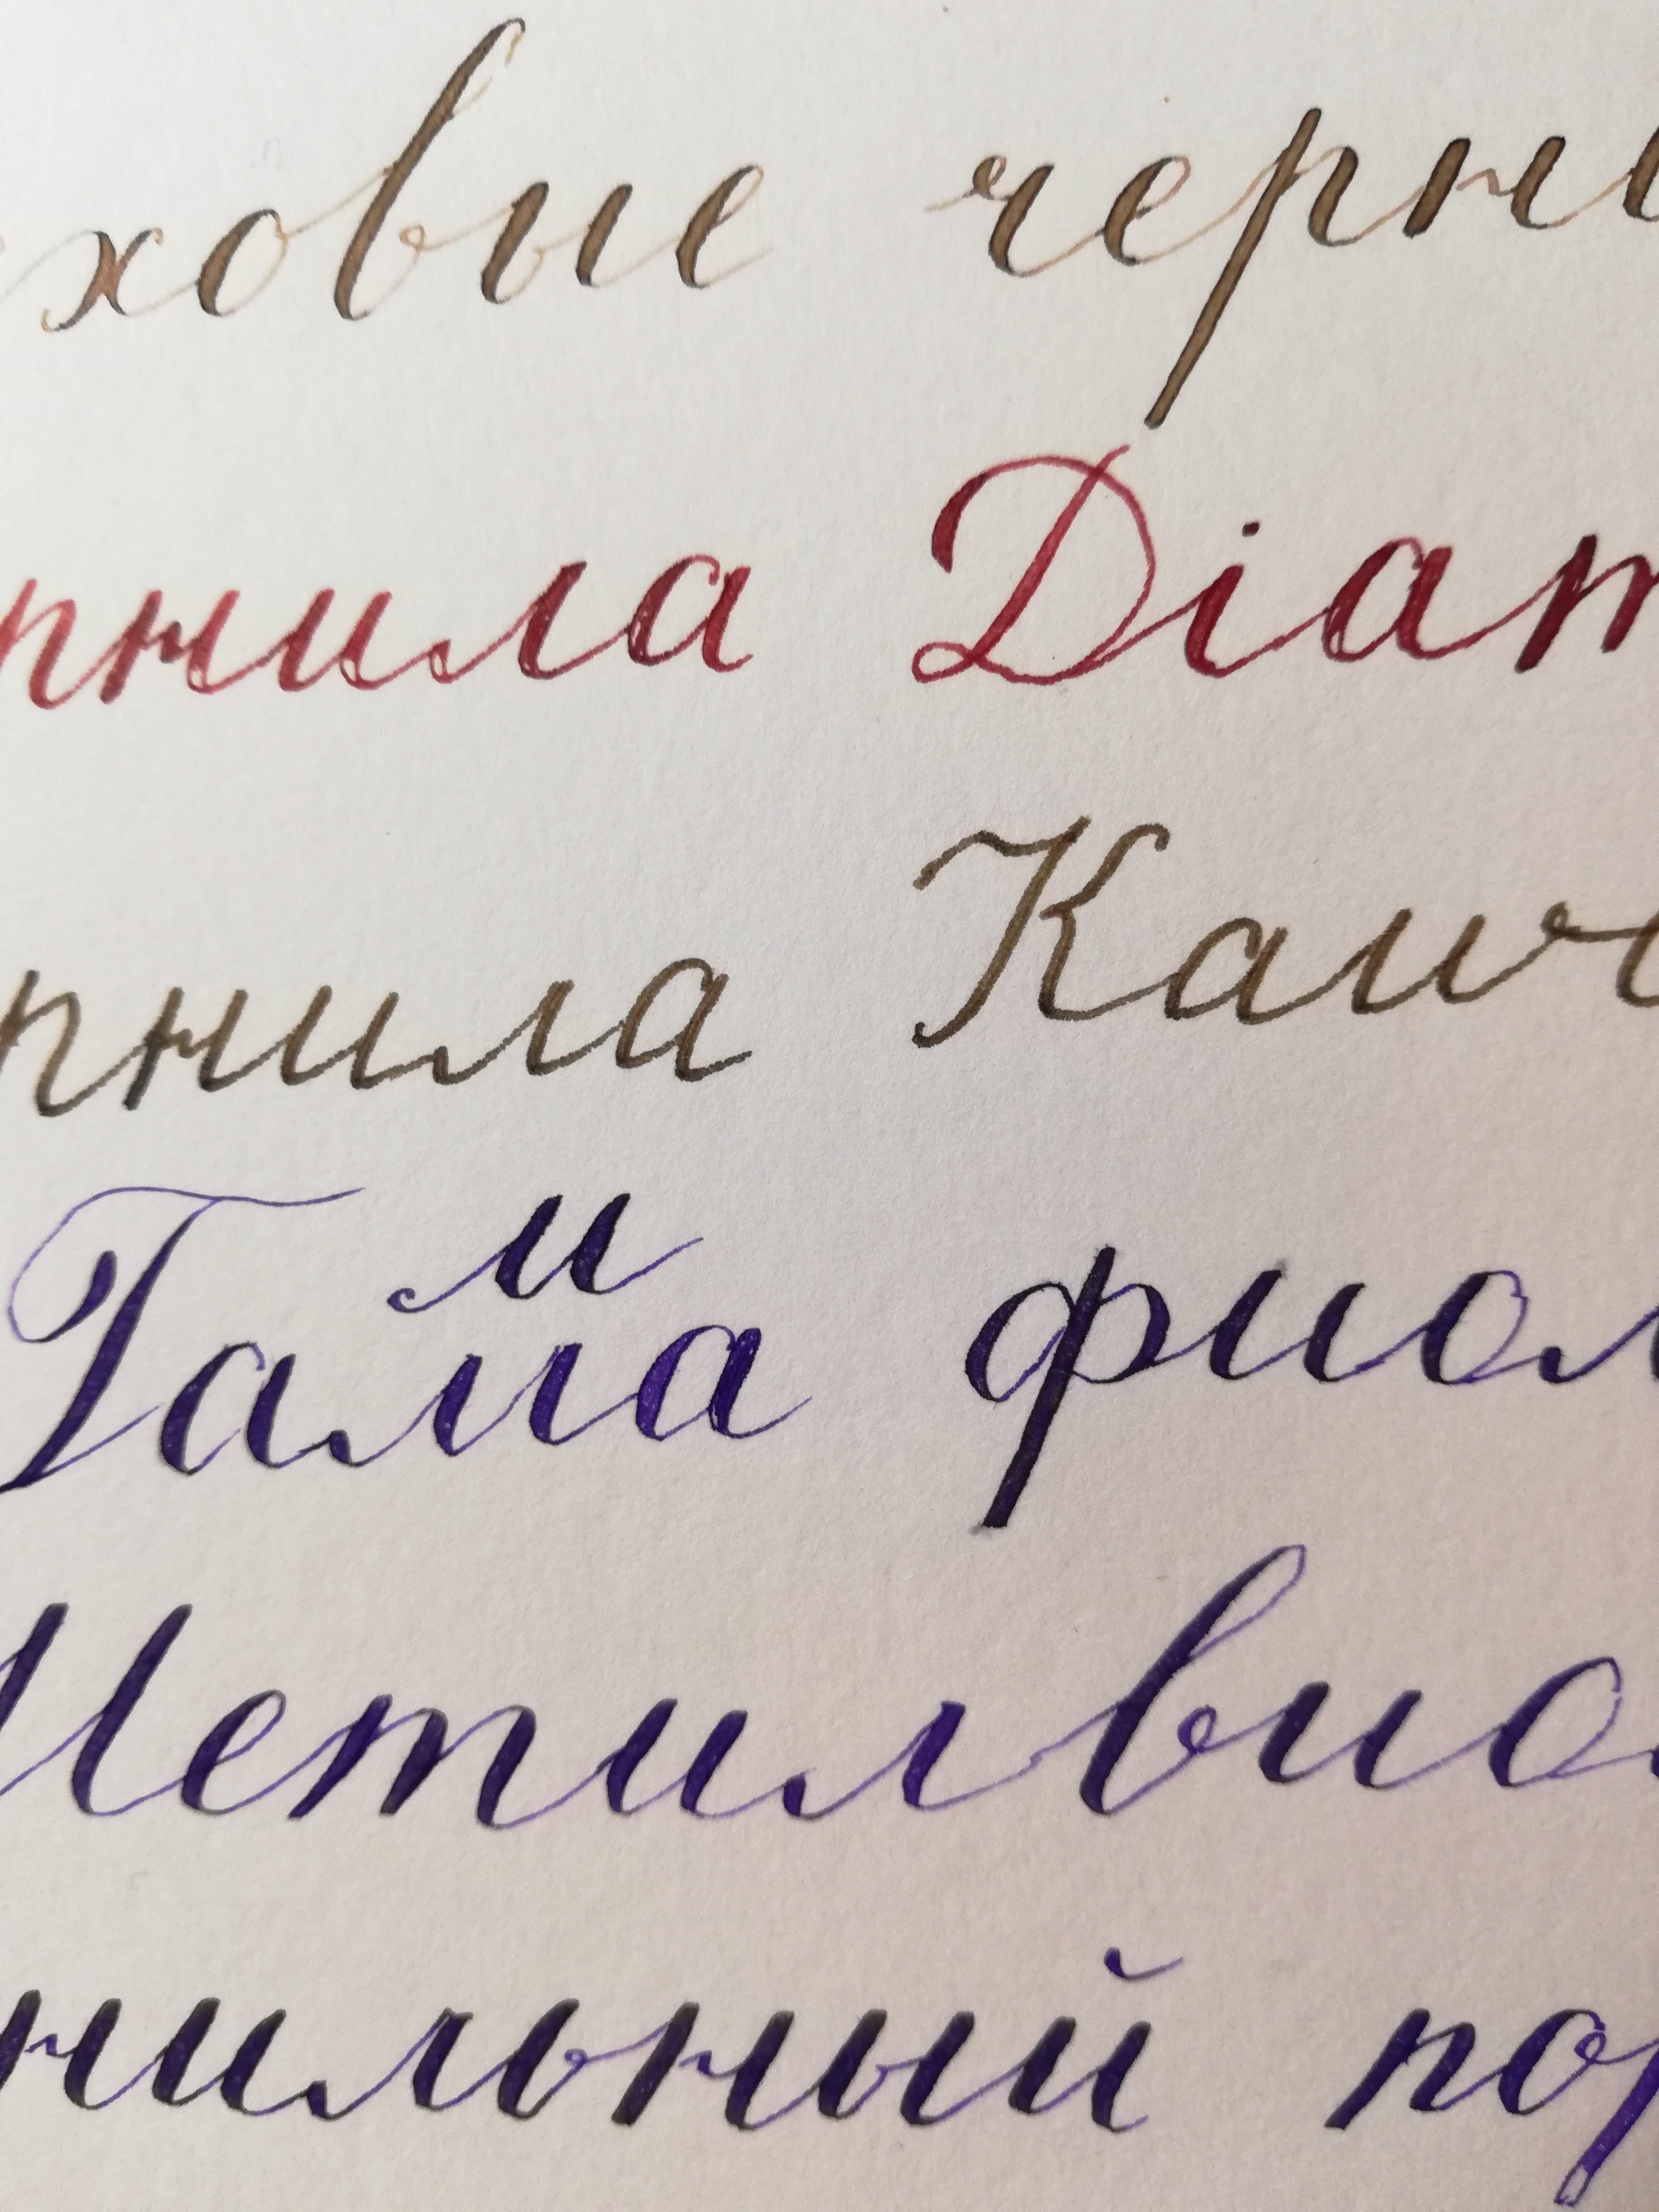 ховые черни
рнила Diam
рнила Кауч
м
Гамa фиол
Метилвиол
нильный пор